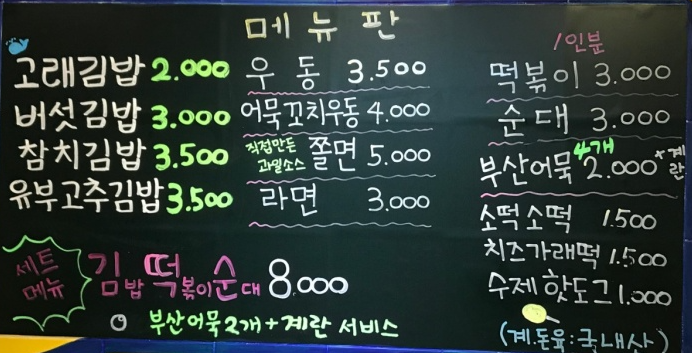 메뉴판
고래김밥 2.000
버섯김밥 3.000
참치김밥 3.500
유부고추김밥 3.500
우동 3.500
어묵꼬치우동 4.000
직접만든 과일소스 쫄면 5.000
라면 3.000
1인분
떡볶이 3.000
순대 3.000
부산어묵 4개 2.000 +계란
소떡소떡 1.500
치즈가래떡 1.500
수제핫도그 1.000
(계.돈육:국내산)
세트
메뉴
김밥 떡볶이 순대 8.000
부산어묵2개+계란 서비스